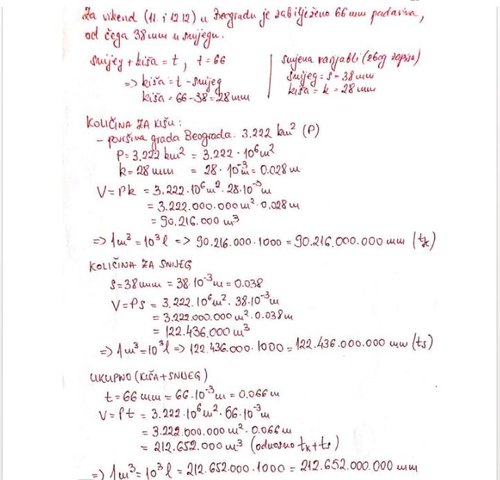 Za vikend (11. i 12.12) u Beogradu je zabilježeno 66 mm padavina,
od čega 38 mm u snijegu.
snijeg + kiša = t, t = 66
⇒ kiša = t - snijeg
kiša = 66 - 38 = 28 mm
smjena varijabli (zbog zapisa)
snijeg = s = 38 mm
kiša = k = 28 mm
KOLIČINA ZA KIŠU:
- površina grada Beograda: 3.222 km² (P)
P = 3.222 km² = 3.222 · 10⁶ m²
k = 28 mm = 28 · 10⁻³ m = 0.028 m
V = Pk = 3.222 · 10⁶ m² · 28 · 10⁻³ m
= 3.222.000.000 m² · 0.028 m
= 90.216.000 m³
⇒ 1 m³ = 10³ l ⇒ 90.216.000 · 1000 = 90.216.000.000 mm (tₖ)
KOLIČINA ZA SNIJEG
s = 38 mm = 38 · 10⁻³ m = 0.038
V = Ps = 3.222 · 10⁶ m² · 38 · 10⁻³ m
= 3.222.000.000 m² · 0.038 m
= 122.436.000 m³
⇒ 1 m³ = 10³ l ⇒ 122.436.000 · 1000 = 122.436.000.000 mm (ts)
UKUPNO (KIŠA + SNIJEG)
t = 66 mm = 66 · 10⁻³ m = 0.066 m
V = Pt = 3.222 · 10⁶ m² · 66 · 10⁻³ m
= 3.222.000.000 m² · 0.066 m
= 212.652.000 m³ (odnosno tₖ + ts)
⇒ 1 m³ = 10³ l = 212.652.000 · 1000 = 212.652.000.000 mm